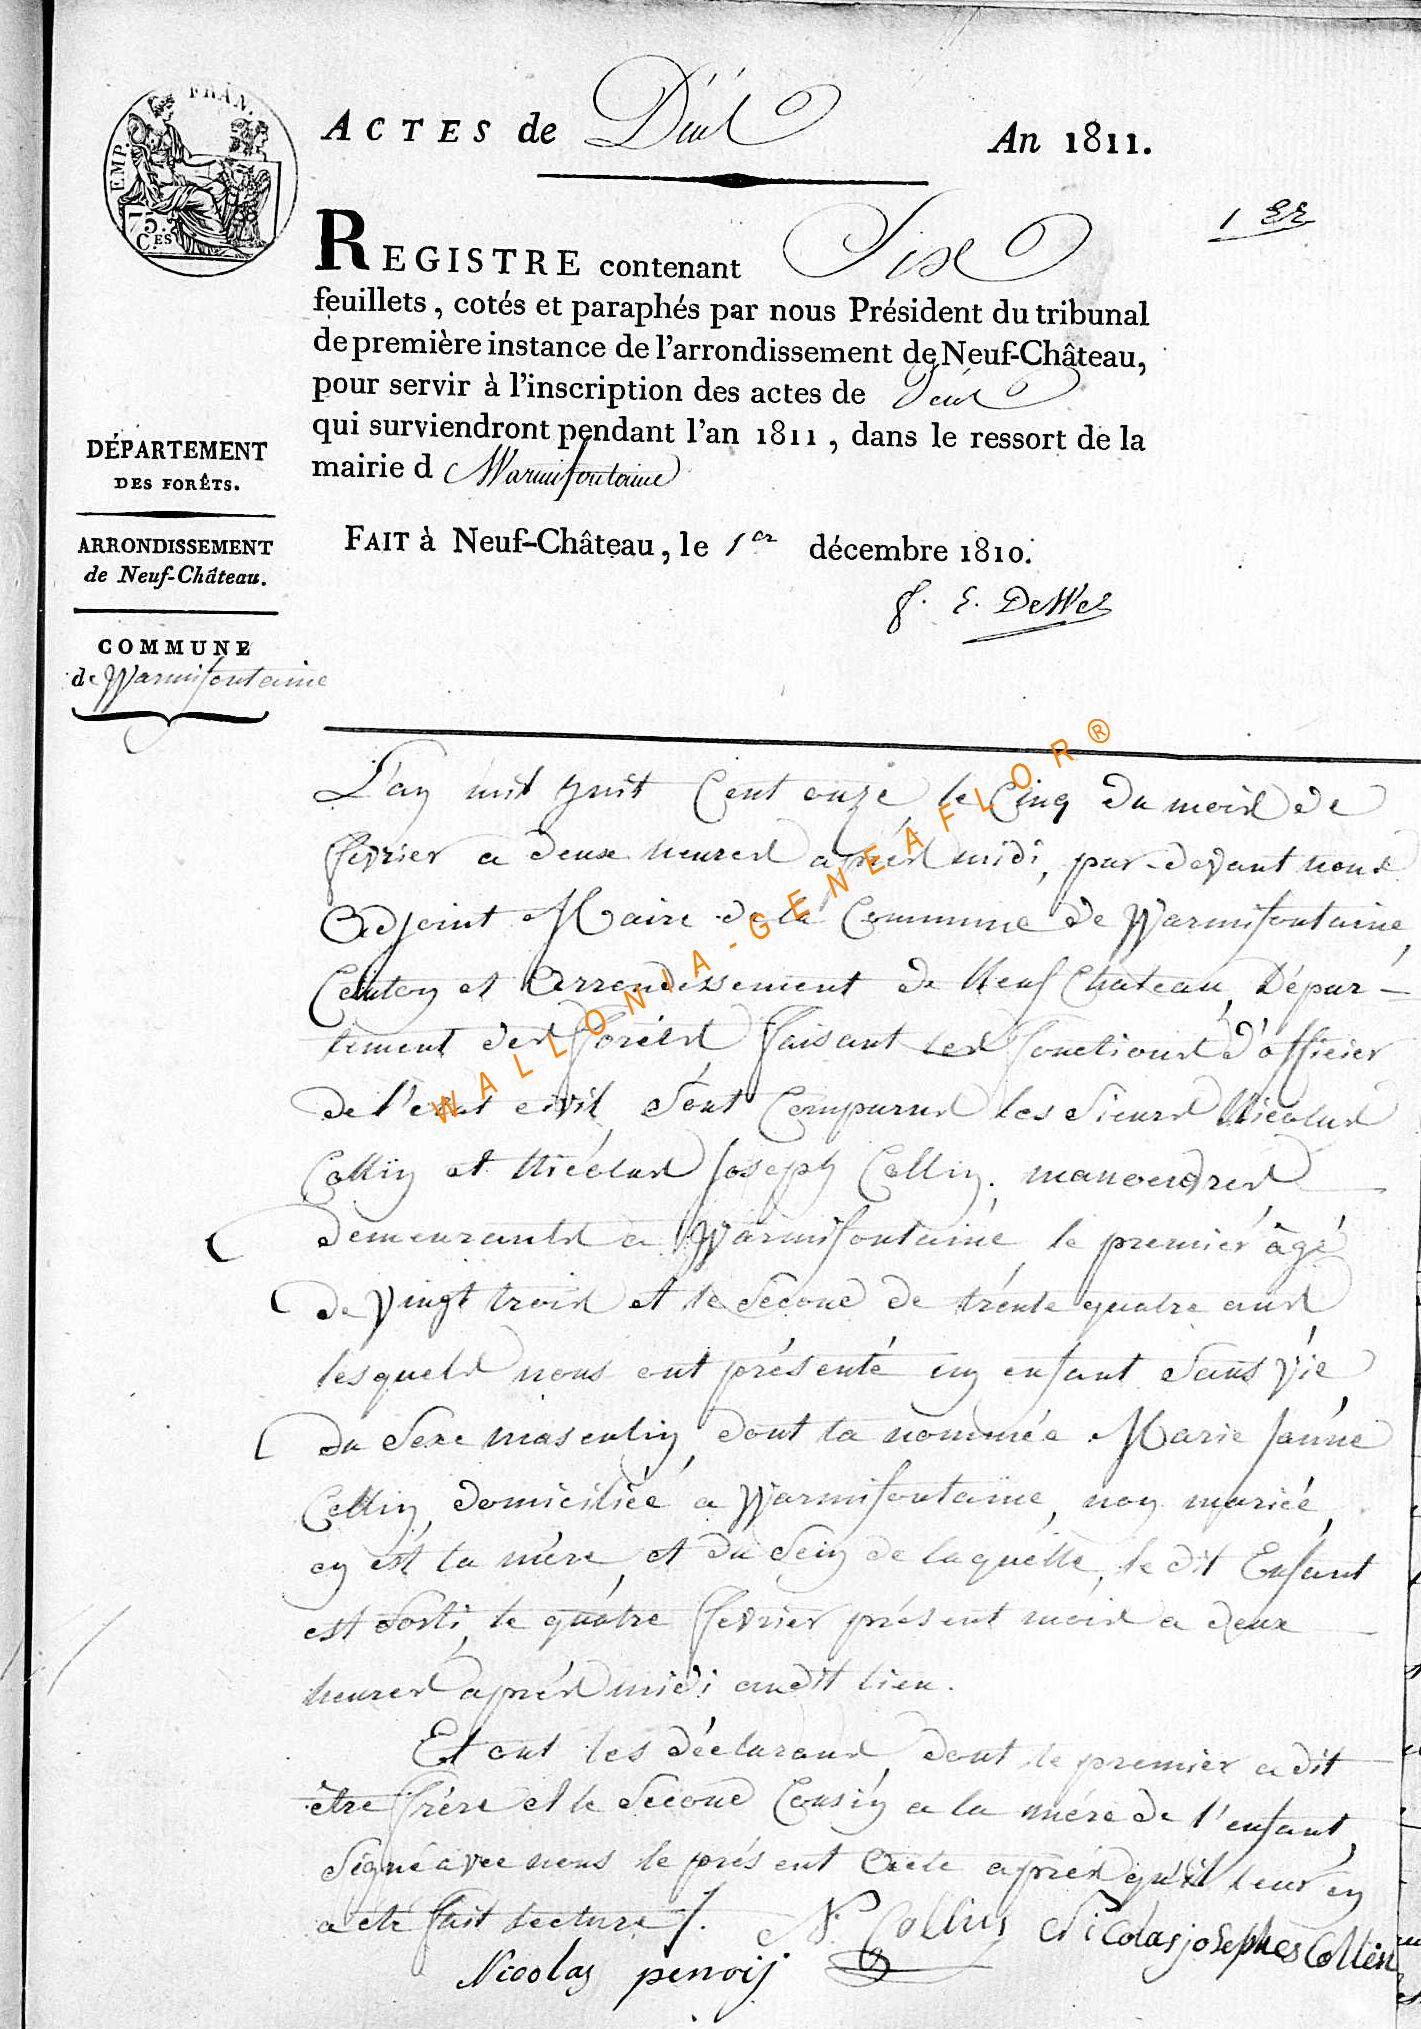 FRAN.
EMP.
75.
C.ES
ACTES de Décés An 1811.
1 Er
REGISTRE contenant Six
feuillets, cotés et paraphés par nous Président du tribunal
de première instance de l'arrondissement de Neuf-Château,
pour servir à l'inscription des actes de Décés
qui surviendront pendant l'an 1811, dans le ressort de la
mairie d Warmifontaine
DÉPARTEMENT
DES FORÊTS.
ARRONDISSEMENT
de Neuf-Château.
COMMUNE
de Warmifontaine
FAIT à Neuf-Château, le 1er décembre 1810.
WALLONIA-GENEAFLOR®
L'an mil huit Cent onze, le Cinq du mois de
fevrier a deux heures après midi, par-devant nous
Adjoint Maire de la Commune de Warmifontaine,
Canton et Arrondissement de Neuf Chateau, Dépar-
tement des forèts, faisant les fonctions d'officier
de l'etat civil, Sont Comparus les Sieurs Nicolas
Collin et Nicolas Joseph Collin. manoeuvres
demeurants a Warmifontaine, le premier âgé
de vingt trois et le Second de trente quatre ans
lesquels nous ont présenté un enfant Sans vie
du Sexe masculin, dont la nommée Marie Janne
Collin, domiciliée a Warmifontaine, non mariée,
en est la mère, et du Sein de laquelle, le dit Enfant
est Sorti, le quatre fevrier présent mois a deux
heures après midi audit lieu.
Et ont les déclarans, dont le premier a dit
être frère et le Second Cousin a la mére de l'enfant,
Signé avec nous le présent Acte après qu'il leur en
a été fait lecture /. N. Collin Nicolas josephes Collin
Nicolas penoij